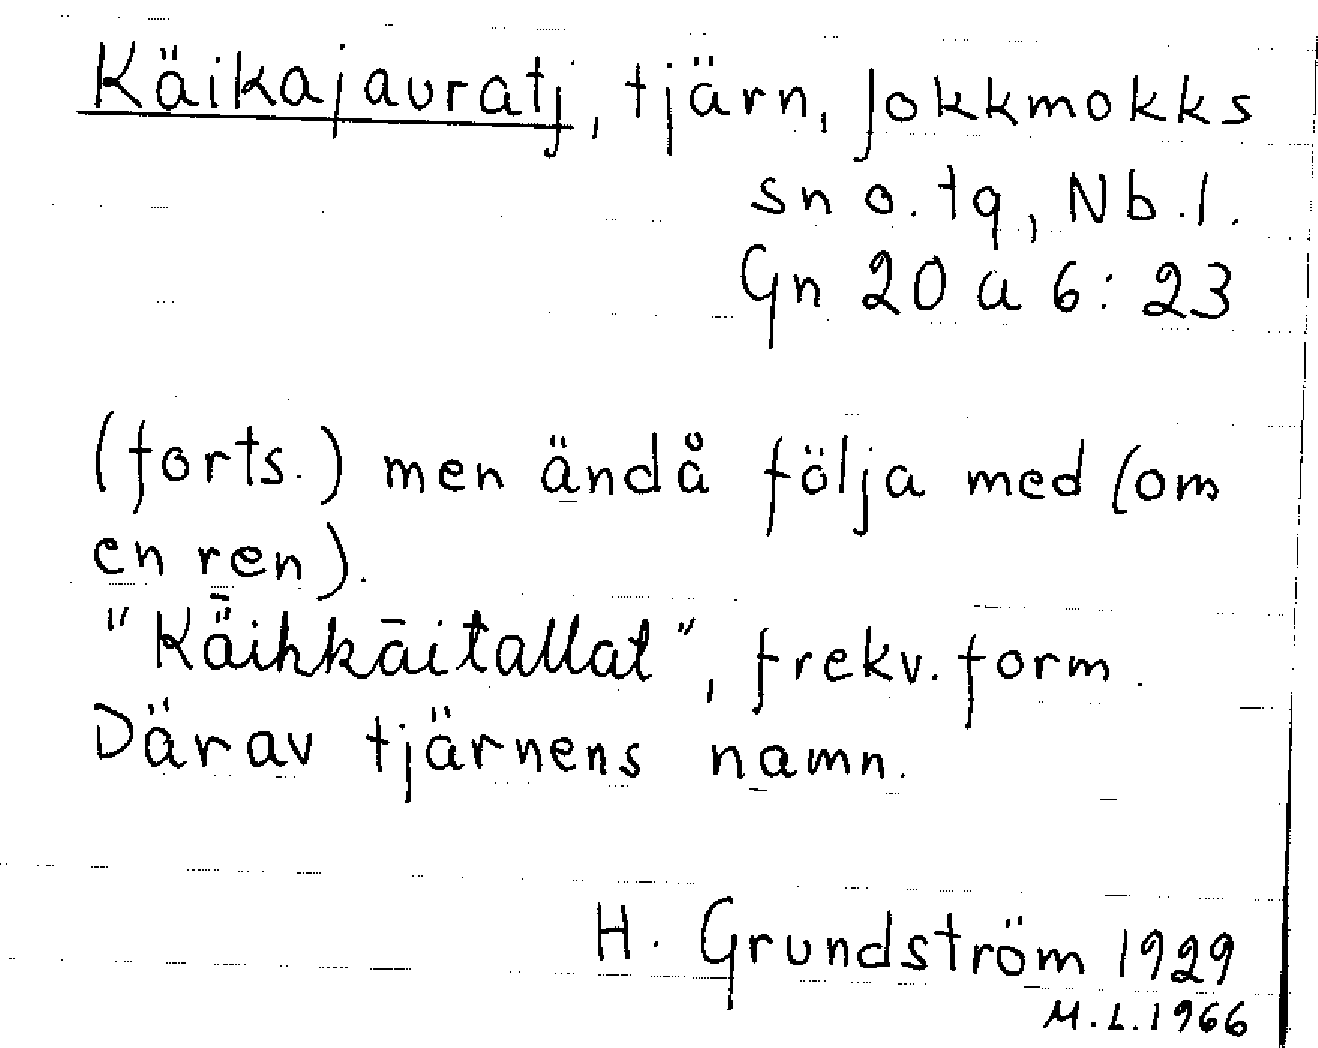 Käikajauratj, tjärn, Jokkmokks
sn o. tg, Nb.l.
Gn 20 a 6:23
(forts.) men ändå följa med (om
en ren).
"Kǟihkāitallat", frekv. form.
Därav tjärnens namn.
H. Grundström 1929
M.L.1966